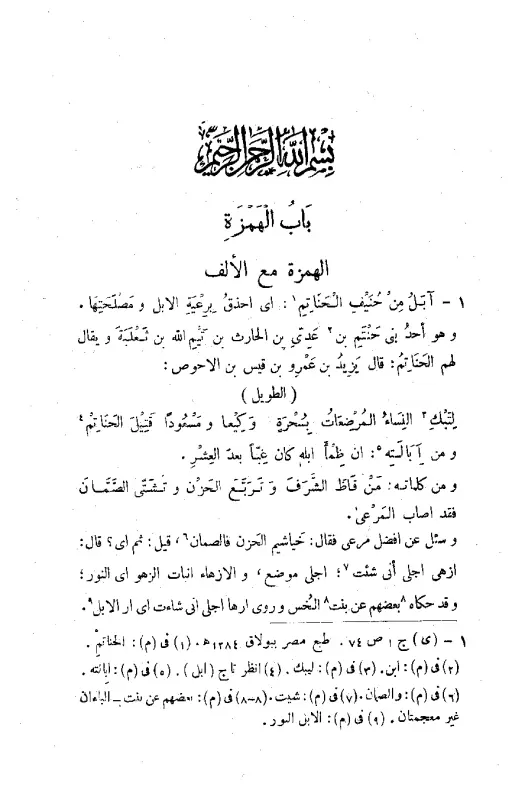 بِسْمِ اللهِ الرَّحْمٰنِ الرَّحِيْمِ
بَابُ الْهَمْزَةِ
الهمزة مع الألف
١ - آبَلُ مِنْ حُنَيْفِ الْحَنَاتِمِ١: اى احذقُ بِرِعْيَةِ الابل و مَصْلَحَتِها.
و هو أحدُ بنى حَنْتَمِ بن٢ عَدِيّ بن الحارث بن تَيْمِ الله بن ثَعْلَبَةَ و يقال
لهم الحَنَاتِمُ: قال يَزِيدُ بن عَمْرو بن قيس بن الاحوص:
(الطويل)
لِتَبْكِ٣ النِّسَاءُ المُرْضِعَاتُ بِسُحْرَةٍ وَكِيعًا و مَسْعُودًا قَتِيلَ الحَنَاتِمِ٤
و من آبَالَتِه٥: ان ظِمْأَ ابله كان غِبًّا بعدَ العِشْرِ.
و من كلماته: مَنْ قَاظَ الشَّرَفَ وَ تَرَبَّعَ الحَزْنَ و تَشَتَّى الصَّمَّانَ
فقد اصاب المَرْعى.
و سئل عن افضل مرعى فقال: خياشيم الحزن فالصمان٦، قيل: ثم اى؟ قال:
ازهى اجلى أنى شئت٧؛ اجلى موضع، و الازهاء انبات الزهو اى النور؛
و قد حكاه٨ بعضهم عن بنت٨ الخُس و روى ارها اجلى انى شاءت اى ار الابل٩.
١ - (ى) ج ١ ص ٧٤. طبع مصر ببولاق ١٢٨٤ه. (١) فى (م): الحناتمُ.
(٢) فى (م): ابن. (٣) فى (م): ليبك. (٤) انظر تاج (ابل). (٥) فى (م): ابانته.
(٦) فى (م): والصمان. (٧) فى (م): شيت. (٨-٨) فى (م): بعضهم عن بنت - الباءان
غير معجمتان. (٩) فى (م): الابل النور.